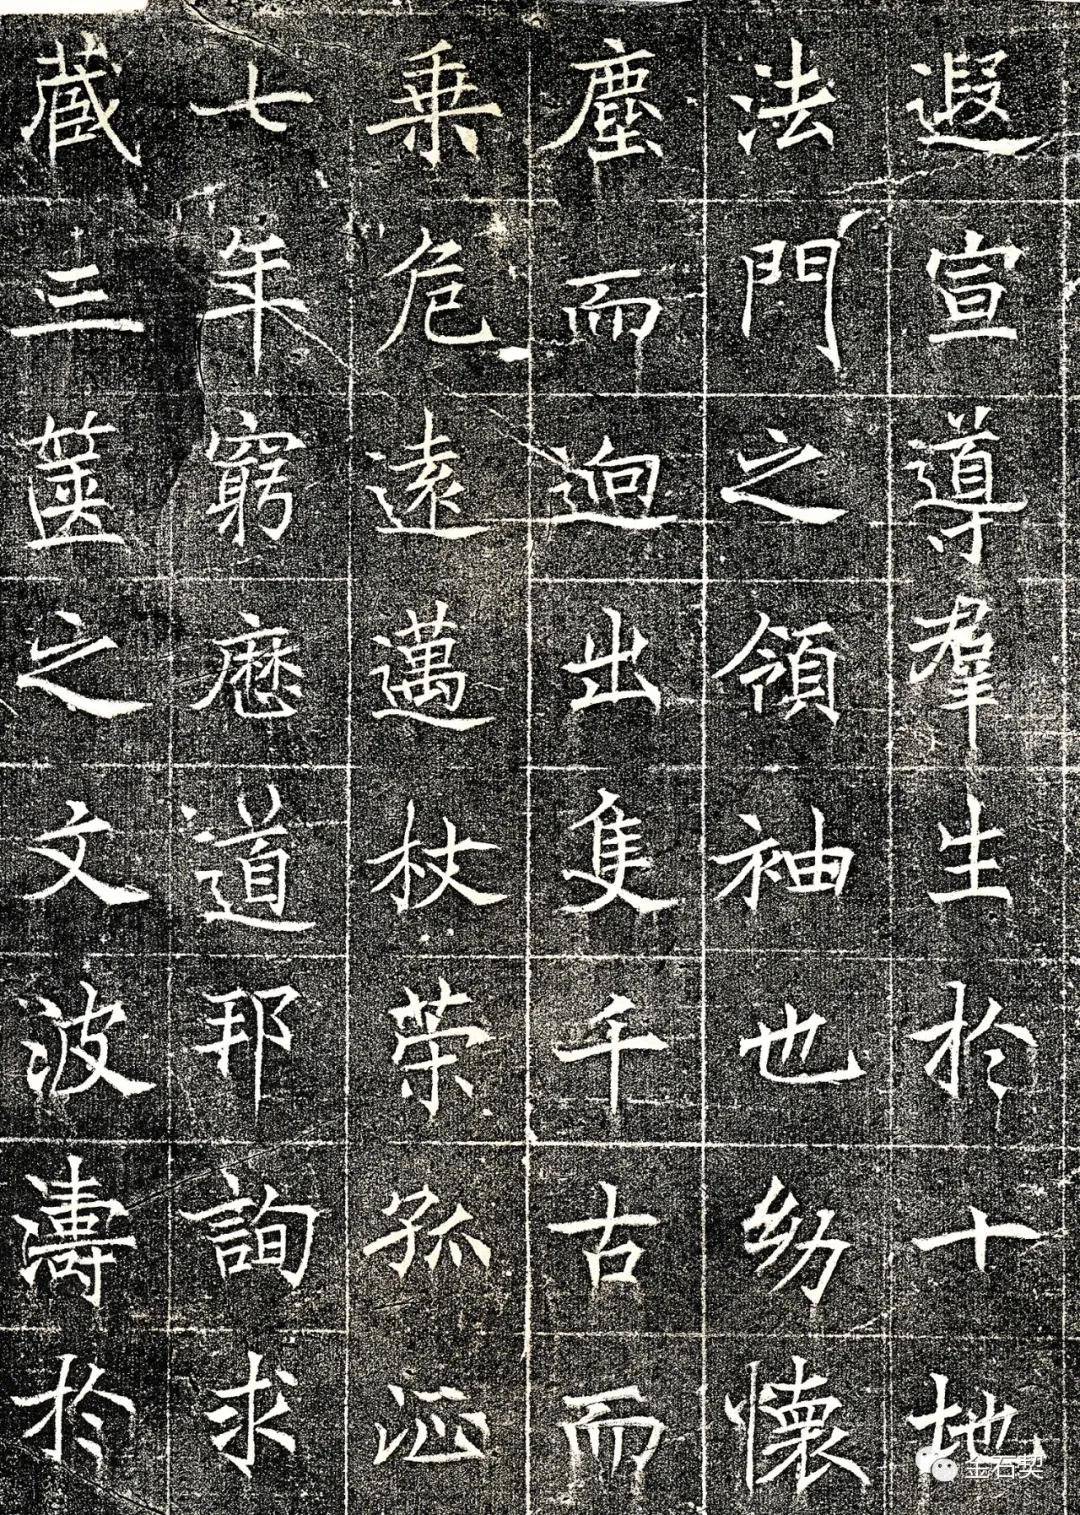 遐宣導羣生於十地
法門之領袖也幼懷
塵而逈出隻千古而
乗危遠邁杖策孤征
七年窮歷道邦詢求
藏三篋之文波濤於
金石契